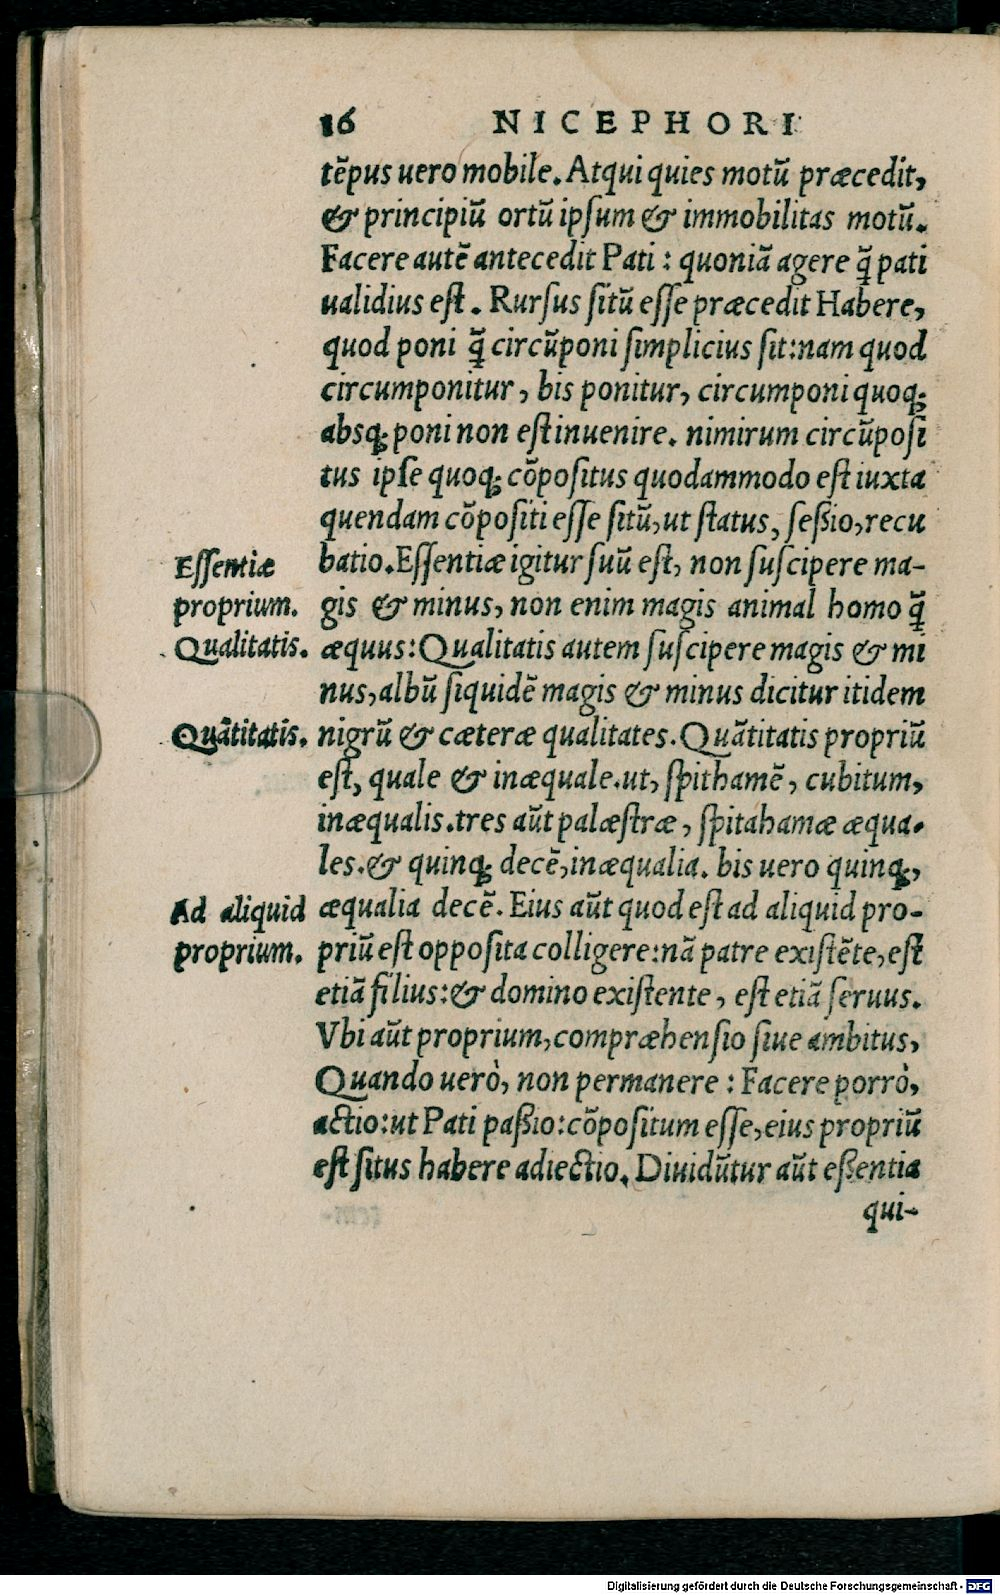 16 NICEPHORI
tēpus uero mobile. Atqui quies motū præcedit,
& principiū ortū ipsum & immobilitas motū.
Facere autē antecedit Pati: quoniā agere q̃ pati
ualidius est. Rursus sitū esse præcedit Habere,
quod poni q̃ circūponi simplicius sit: nam quod
circumponitur, bis ponitur, circumponi quoq;
absq; poni non est inuenire. nimirum circūposi
tus ipse quoq; cōpositus quodammodo est iuxta
quendam cōpositi esse sitū, ut status, seßio, recu
batio. Essentiæ igitur suū est, non suscipere ma-
gis & minus, non enim magis animal homo q̃
æquus: Qualitatis autem suscipere magis & mi
nus, albū siquidē magis & minus dicitur itidem
nigrū & cæteræ qualitates. Quātitatis propriū
est, quale & inæquale. ut, spithamē, cubitum,
inæqualis. tres aūt palæstræ, spitahamæ æqua-
les. & quinq; decē, inæqualia. bis uero quinq;,
æqualia decē. Eius aūt quod est ad aliquid pro-
priū est opposita colligere: nā patre existēte, est
etiā filius: & domino existente, est etiā seruus.
Vbi aūt proprium, compræhensio siue ambitus,
Quando uerò, non permanere: Facere porrò,
actio: ut Pati paßio: cōpositum esse, eius propriū
est situs habere adiectio. Diuidūtur aūt eßentia
qui-
Essentiæ
proprium.
Qualitatis.
Quātitatis.
Ad aliquid
proprium.
Digitalisierung gefördert durch die Deutsche Forschungsgemeinschaft - DFG